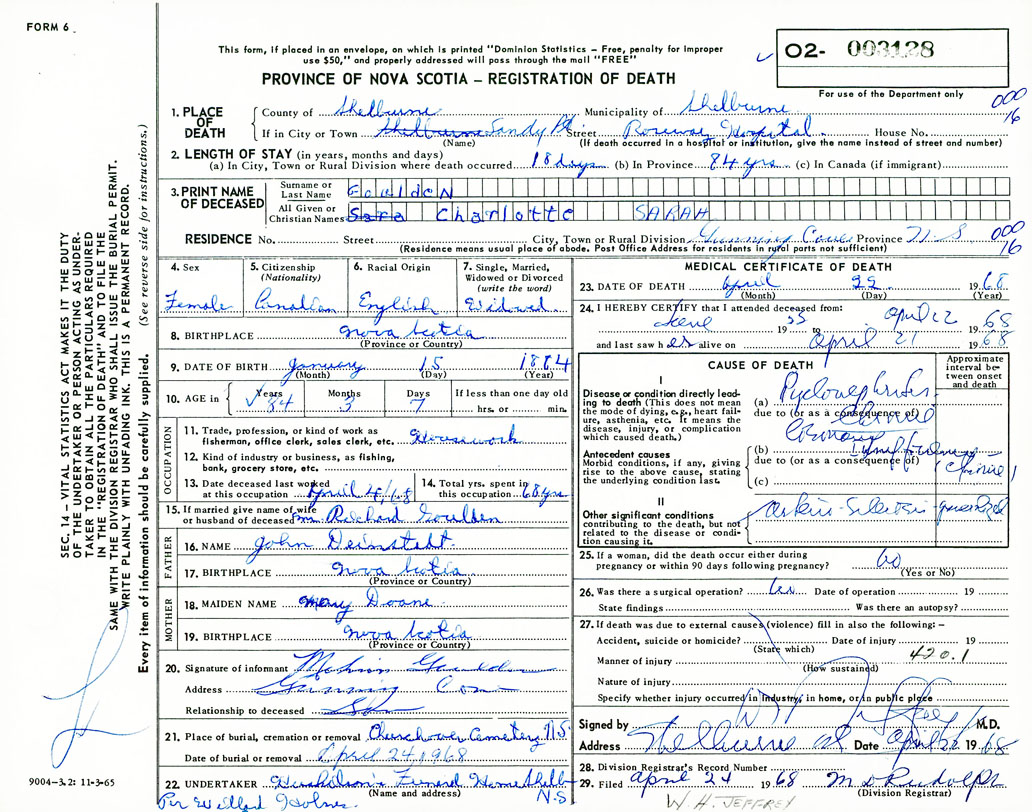 FORM 6
This form, if placed in an envelope, on which is printed "Dominion Statistics – Free, penalty for improper
use $50," and properly addressed will pass through the mail "FREE"
O2- 003128
For use of the Department only
PROVINCE OF NOVA SCOTIA – REGISTRATION OF DEATH
000
16
1. PLACE OF DEATH
County of Shelburne Municipality of Shelburne
If in City or Town Shelburne Sandy Pt. Street Roseway Hospital. House No.
(Name) (If death occurred in a hospital or institution, give the name instead of street and number)
2. LENGTH OF STAY (in years, months and days)
(a) In City, Town or Rural Division where death occurred 18 days (b) In Province 84 yrs (c) In Canada (if immigrant)
3. PRINT NAME OF DECEASED
Surname or Last Name Goulden
All Given or Christian Names Sara Charlotte SARAH
RESIDENCE No. Street City, Town or Rural Division Gunning Cove Province N.S
(Residence means usual place of abode. Post Office Address for residents in rural parts not sufficient)
000
16
4. Sex
Female
5. Citizenship (Nationality)
Canadian
6. Racial Origin
English
7. Single, Married, Widowed or Divorced (write the word)
Widowed
8. BIRTHPLACE Nova Scotia
(Province or Country)
9. DATE OF BIRTH January 15 1884
(Month) (Day) (Year)
10. AGE in Years 84 Months 3 Days 7 If less than one day old
hrs. or min.
OCCUPATION
11. Trade, profession, or kind of work as
fisherman, office clerk, sales clerk, etc. Housework
12. Kind of industry or business, as fishing,
bank, grocery store, etc.
13. Date deceased last worked
at this occupation April 4/68
14. Total yrs. spent in
this occupation 68 yrs
15. If married give name of wife
or husband of deceased Mr. Richard Goulden
FATHER
16. NAME John Deinstadt
17. BIRTHPLACE Nova Scotia
(Province or Country)
MOTHER
18. MAIDEN NAME Mary Doane
19. BIRTHPLACE Nova Scotia
(Province or Country)
20. Signature of informant Goulden
Address Gunning Cove
Relationship to deceased Son
21. Place of burial, cremation or removal Churchover Cemetery N.S
Date of burial or removal April 24, 1968
22. UNDERTAKER Funeral Home Shelb- N.S
(Name and address)
Per Willard Holmes
MEDICAL CERTIFICATE OF DEATH
23. DATE OF DEATH April 22 1968
(Month) (Day) (Year)
24. I HEREBY CERTIFY that I attended deceased from:
June 1955 to April 22 1968
and last saw her alive on April 21 1968
CAUSE OF DEATH
Approximate interval between onset and death
I
Disease or condition directly leading to death (This does not mean
the mode of dying, e.g., heart failure, asthenia, etc. It means the
disease, injury, or complication
which caused death.)
(a) Pyelonephritis
due to (or as a consequence of) Chronic
Coronary
Antecedent causes
Morbid conditions, if any, giving
rise to the above cause, stating
the underlying condition last.
(b) Insufficiency
due to (or as a consequence of) (chronic)
(c)
II
Other significant conditions
contributing to the death, but not
related to the disease or condition causing it.
generalized
25. If a woman, did the death occur either during
pregnancy or within 90 days following pregnancy? No
(Yes or No)
26. Was there a surgical operation? Date of operation 19
State findings Was there an autopsy?
27. If death was due to external causes (violence) fill in also the following: –
Accident, suicide or homicide? Date of injury 19
(State which)
420.1
Manner of injury
(How sustained)
Nature of injury
Specify whether injury occurred in industry, in home, or in public place
Signed by M.D.
Address Shelburne NS Date April 22 1968
28. Division Registrar's Record Number
29. Filed April 24 1968 M D Rudolph
(Division Registrar)
W.H. JEFFREY
SEC. 14 – VITAL STATISTICS ACT MAKES IT THE DUTY
OF THE UNDERTAKER OR PERSON ACTING AS UNDER-
TAKER TO OBTAIN ALL THE PARTICULARS REQUIRED
IN THE "REGISTRATION OF DEATH" AND TO FILE THE
SAME WITH THE DIVISION REGISTRAR WHO SHALL ISSUE THE BURIAL PERMIT.
WRITE PLAINLY WITH UNFADING INK. THIS IS A PERMANENT RECORD.
Every item of information should be carefully supplied. (See reverse side for instructions.)
9004-3.2: 11-3-65